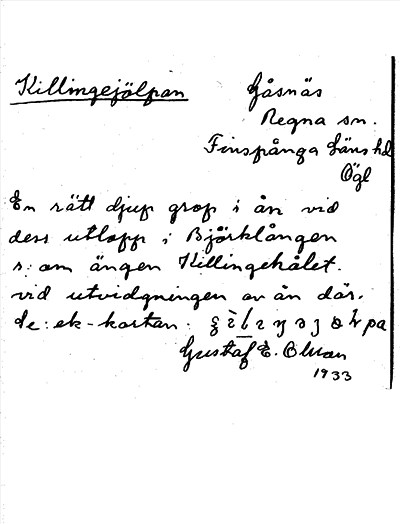 Killingejölpan
Gåsnäs
Regna sn.
Finspånga läns hd
Ögl
En rätt djup grop i ån vid
dess utlopp i Björklången
s. om ängen Killingehålet.
vid utvidgningen av ån där.
Se: ek-kartan.
Gustaf E. Olsson
1933